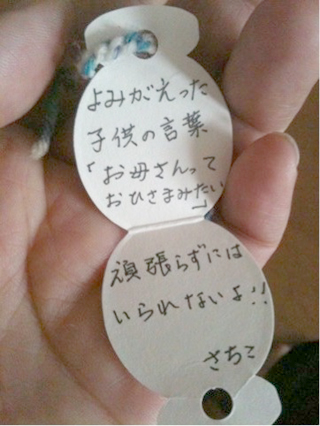 よみがえった
子供の言葉
「お母さんって
おひさまみたい」
頑張らずには
いられないよ!!
さちこ